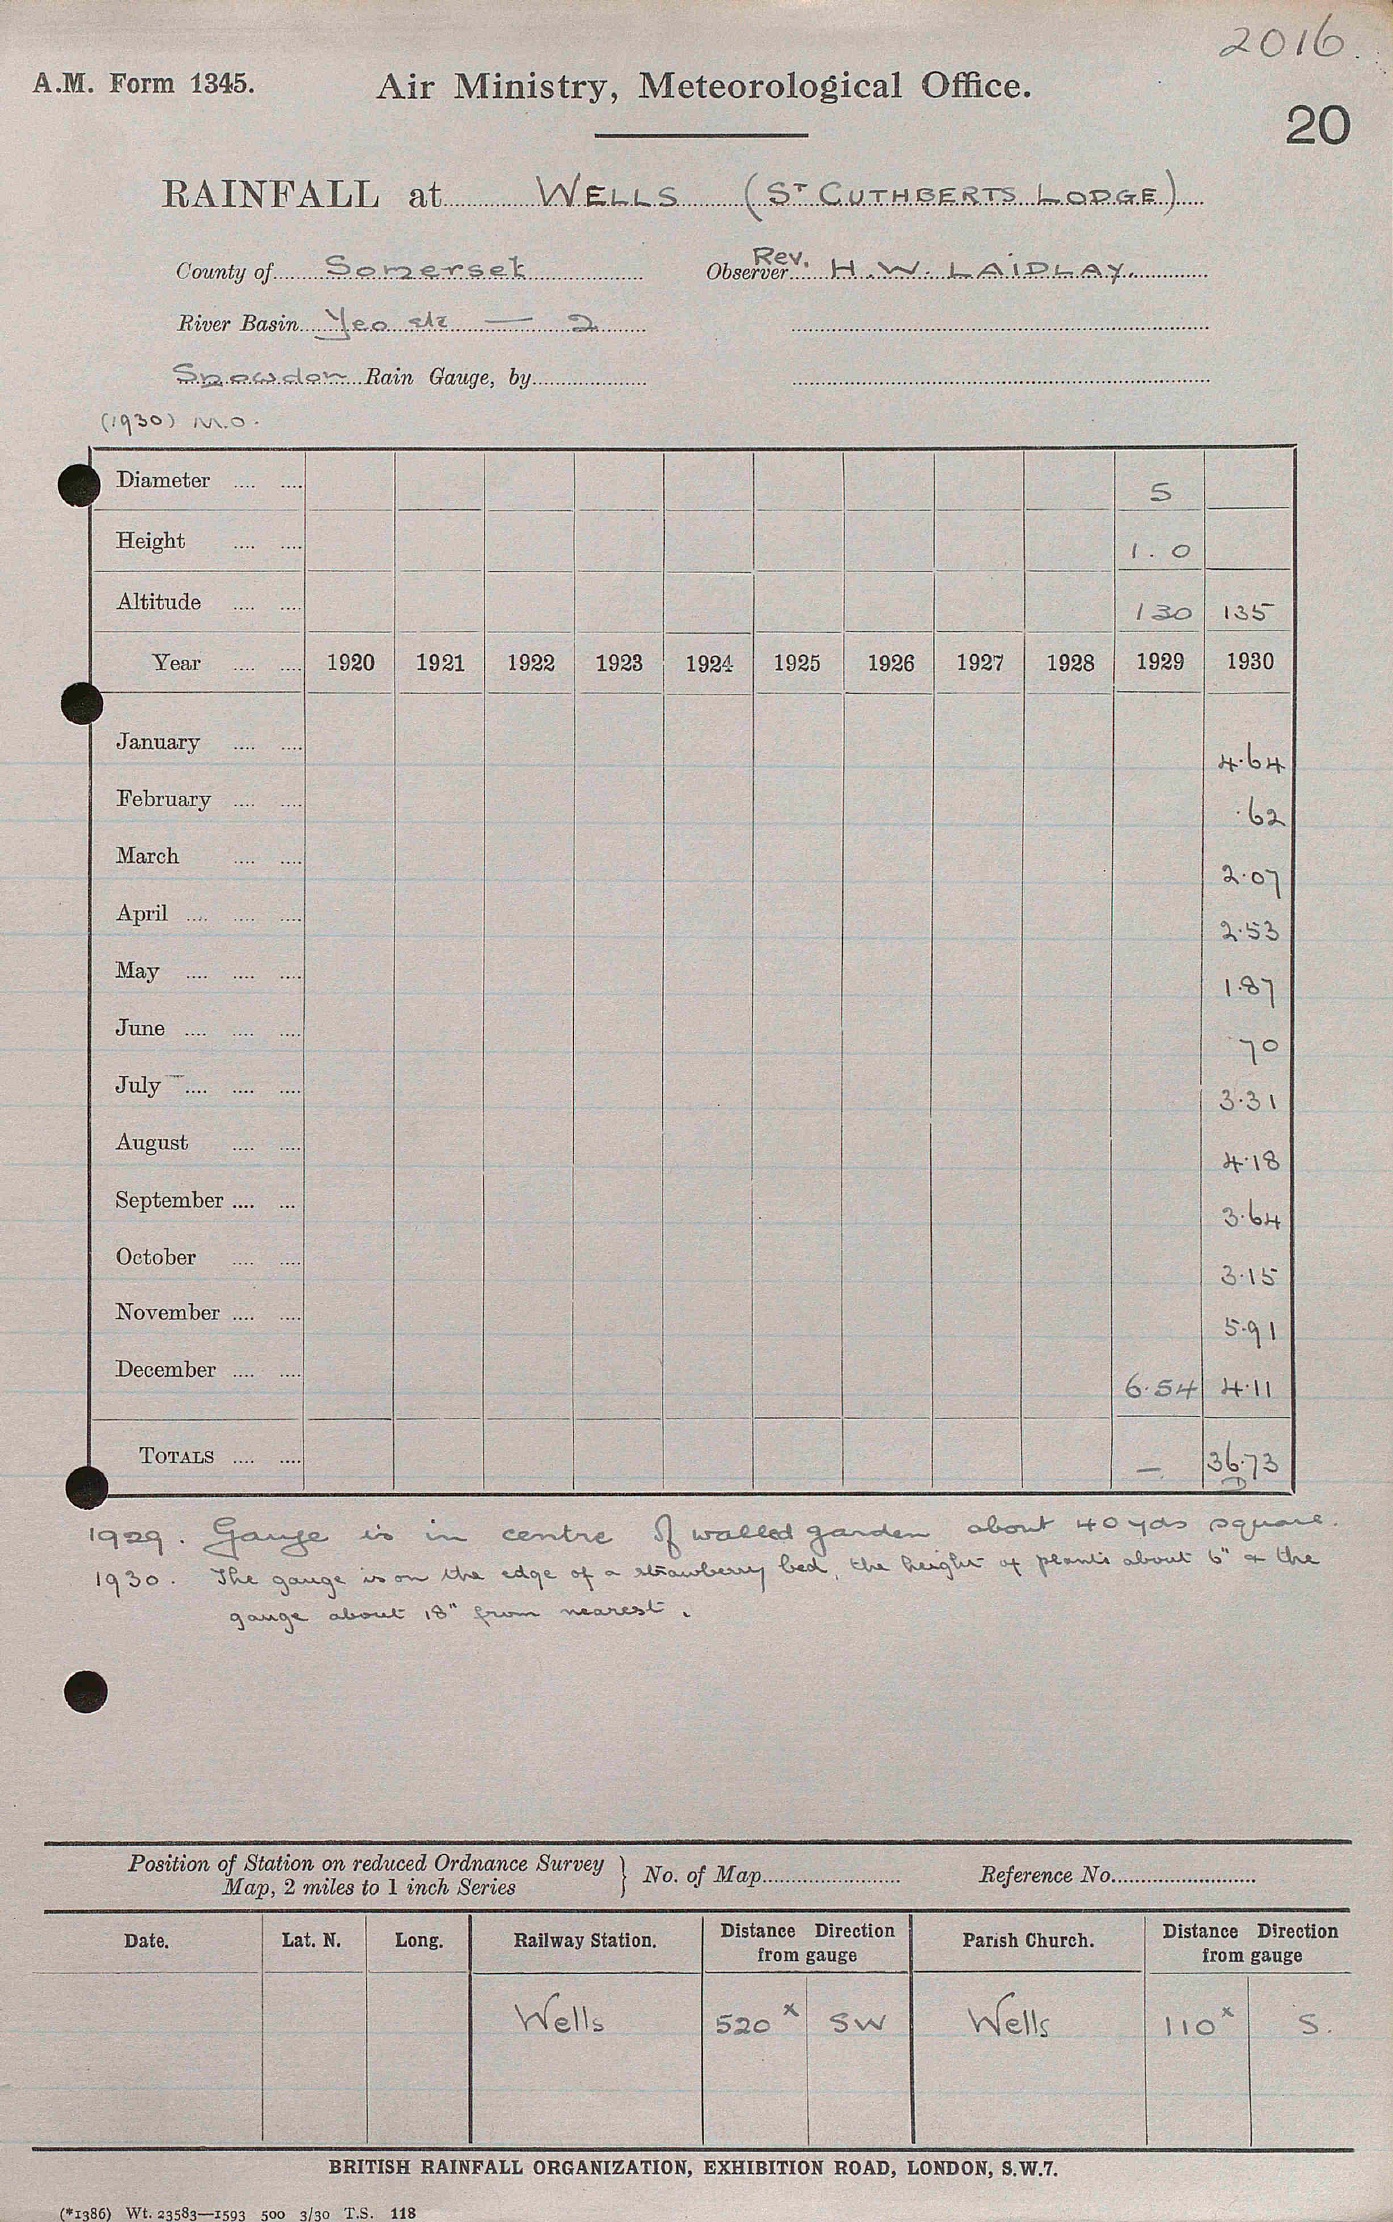 2016
A.M. Form 1345. Air Ministry, Meteorological Office.
20
RAINFALL at WELLS (ST CUTHBERTS LODGE)
County of Somerset Observer Rev. H.W. LAIDLAY.
River Basin Yeo etc — 2
Snowdon Rain Gauge, by
(1930) M.O.
Diameter .... .... 5
Height .... .... 1.0
Altitude .... .... 130 135
Year .... .... 1920 1921 1922 1923 1924 1925 1926 1927 1928 1929 1930
January .... .... 4.64
February .... .... .62
March .... .... 2.07
April .... .... .... 2.53
May .... .... .... 1.87
June .... .... .... 70
July .... .... .... 3.31
August .... .... 4.18
September .... ... 3.64
October .... .... 3.15
November .... .... 5.91
December .... .... 6.54 4.11
TOTALS .... .... — 36.73
1929. Gauge is in centre of walled garden about 40 yds square.
1930. The gauge is on the edge of a strawberry bed, the height of plants about 6" & the
gauge about 18" from nearest.
Position of Station on reduced Ordnance Survey
Map, 2 miles to 1 inch Series } No. of Map Reference No.
Date. Lat. N. Long. Railway Station. Distance Direction from gauge Parish Church. Distance Direction from gauge
Wells 520x SW Wells 110x S.
BRITISH RAINFALL ORGANIZATION, EXHIBITION ROAD, LONDON, S.W.7.
(*1386) Wt. 23583—1593 500 3/30 T.S. 118